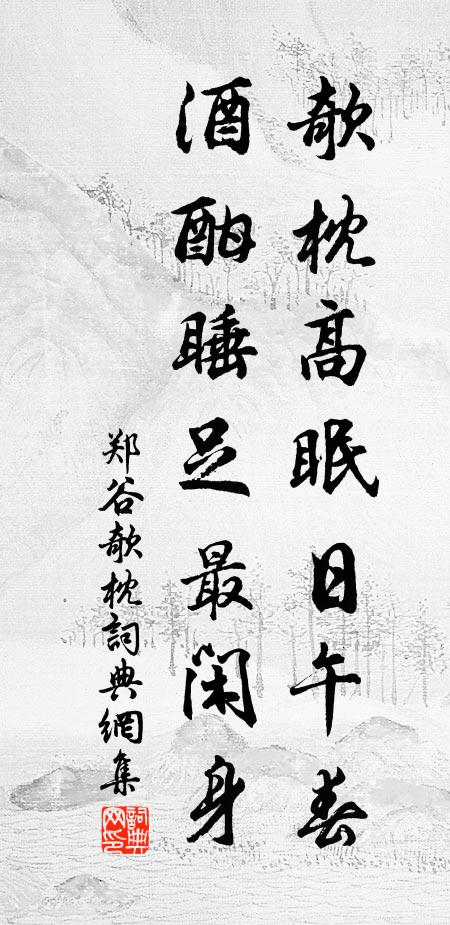 欹枕高眠日午春
酒酣睡足最闲身
郑谷欹枕詞典網集
詞典網印